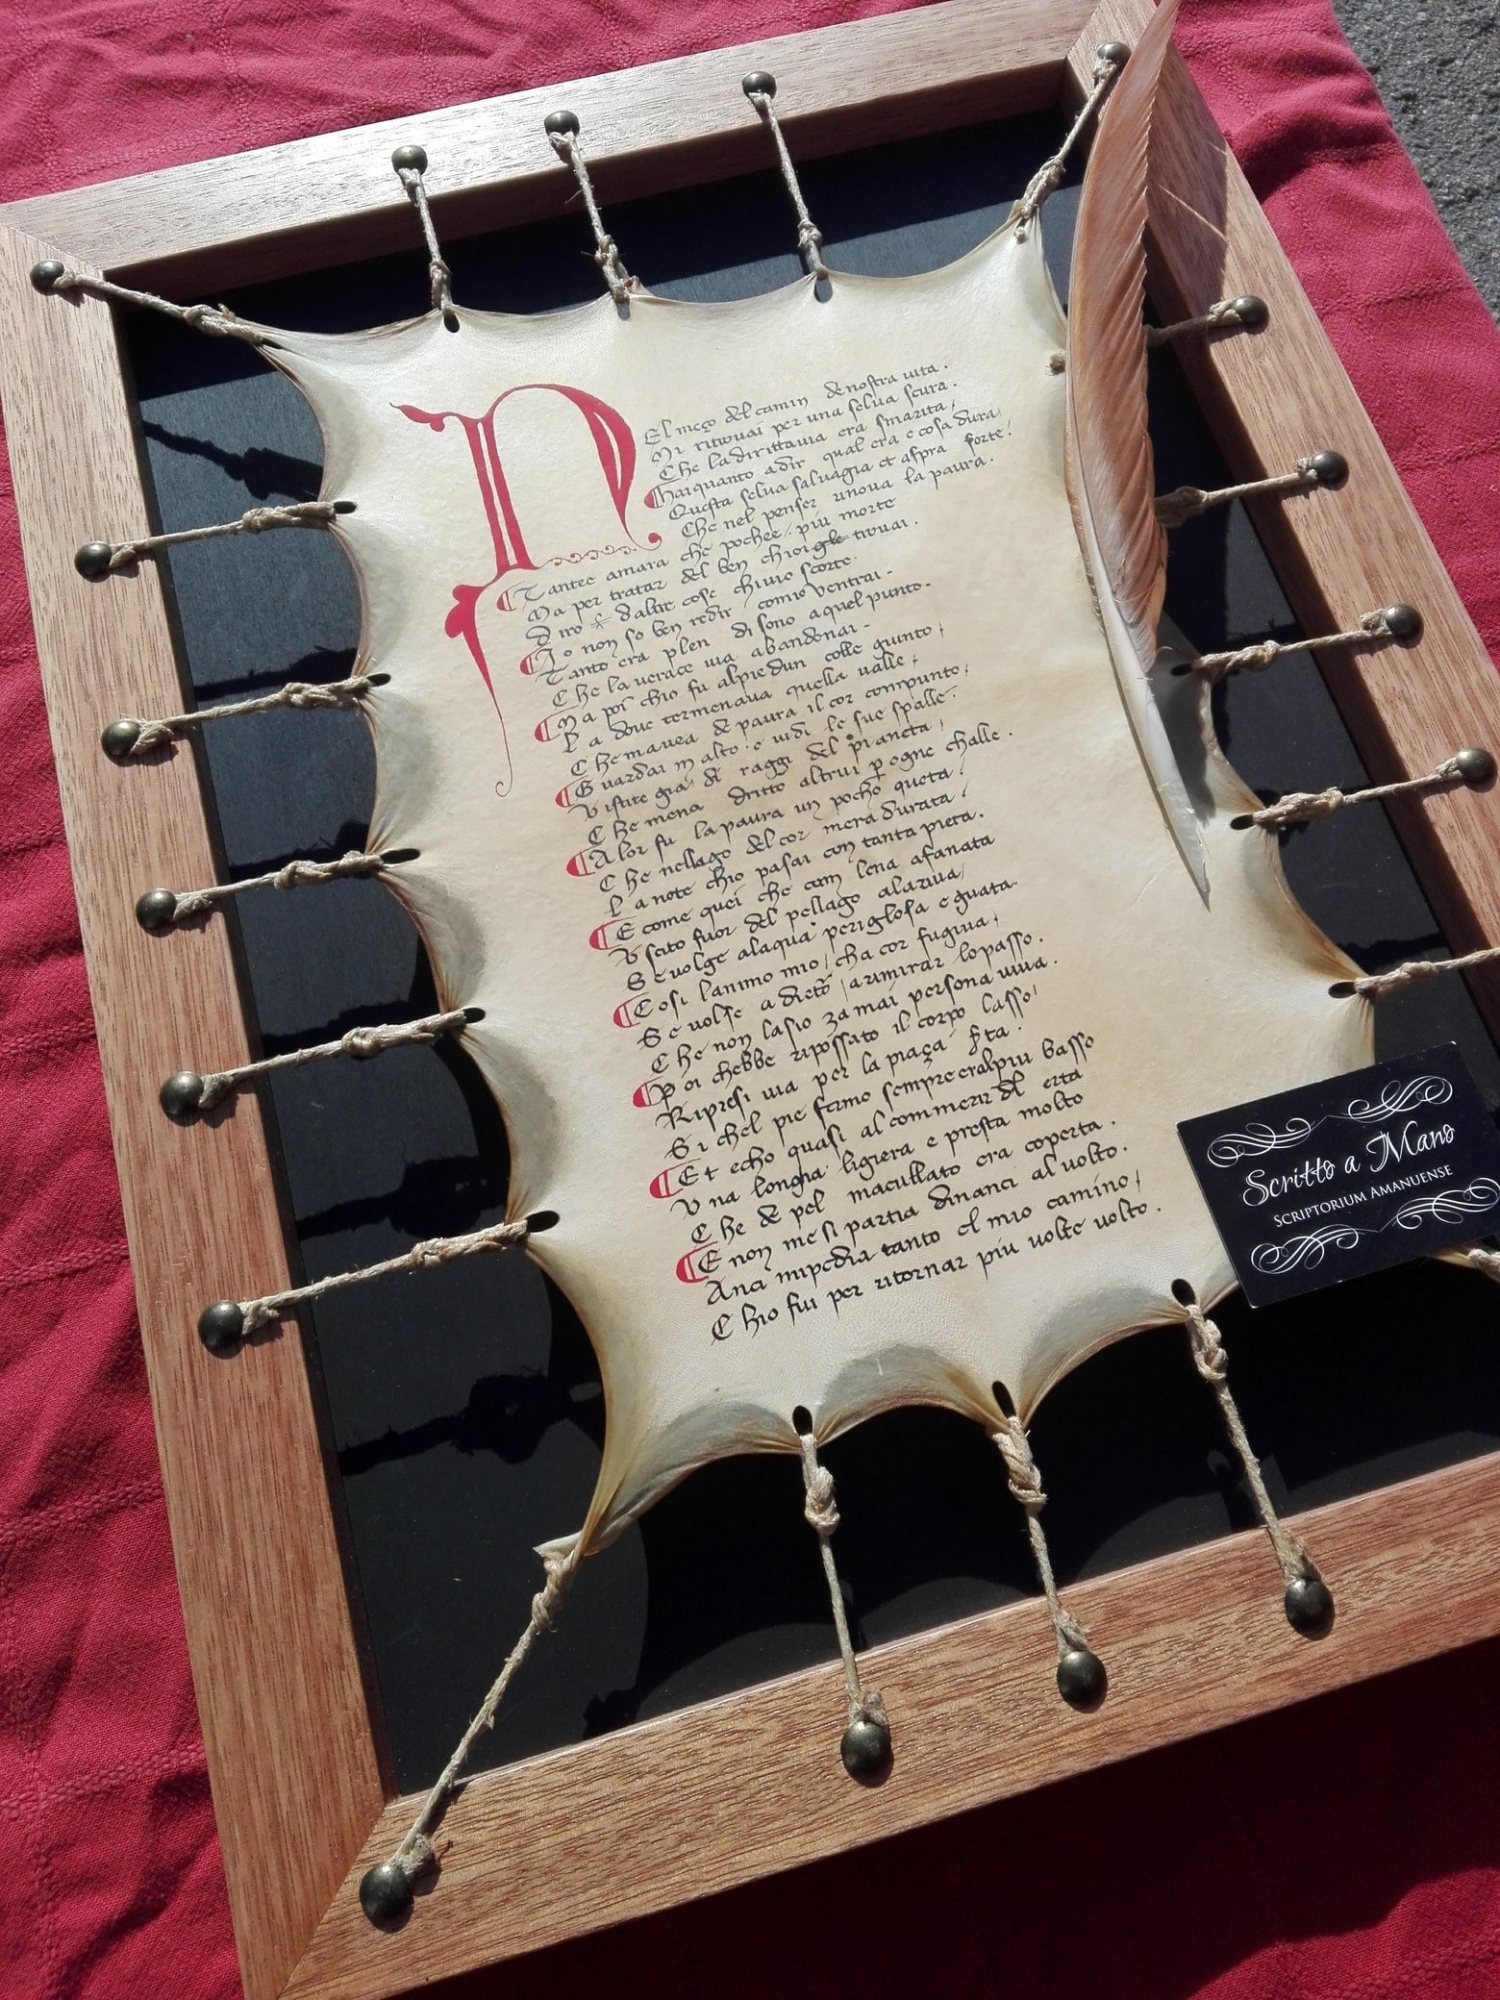 NEl meço del camin de nostra uita.
Mi ritrouai per una selua scura.
Che la dirittauia era smarita,
Hai quanto a dir qual era e cosa dura
Questa selua saluagia et aspra forte!
Che nel penser rinoua la paura.
Tantee amara che pochee piu morte
Ma per tratar del ben chio gle trouai.
Diro de laltre cose chiuio scorte.
Io non so ben redir comio ventrai.
Tanto era plen di sono aquel punto.
Che la uerace uia abandonai.
Ma poi chio fu alpiedun colle giunto,
La doue termenaua quella ualle,
Che mauea de paura il cor compunto,
Guardai in alto e uidi le sue spalle.
Vistite gia di raggi del pianeta,
Che mena dritto altrui p ogne challe.
Alor fu la paura un pocho queta,
Che nellago del cor mera durata,
La note chio pasai con tanta pieta.
E come quei che com lena afanata
Vscito fuor del pellago alariua,
Se uolge alaqua periglosa e guata.
Cosi lanimo mio, cha cor fugiua,
Se uolse a dieto, arimirar lo passo.
Che non lasio zamai persona uiua.
Poi chebbe ripossato il corpo lasso,
Ripresi uia per la piaça
Si chel pie fermo sempre eralpiu basso
Et echo quasi al comenzar del erta
Vna longha ligiera e presta molto
Che de pel macullato era coperta.
E non mesi partia dinanci al uolto.
Anci mipedia tanto el mio camino,
Chio fui per ritornar piu uolte uolto.
Scritto a Mano
SCRIPTORIUM AMANUENSE